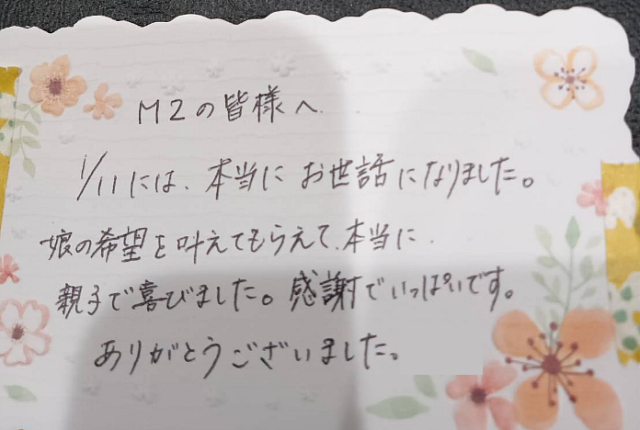 M2の皆様へ
1/11には、本当にお世話になりました。
娘の希望を叶えてもらえて、本当に
親子で喜びました。感謝でいっぱいです。
ありがとうございました。